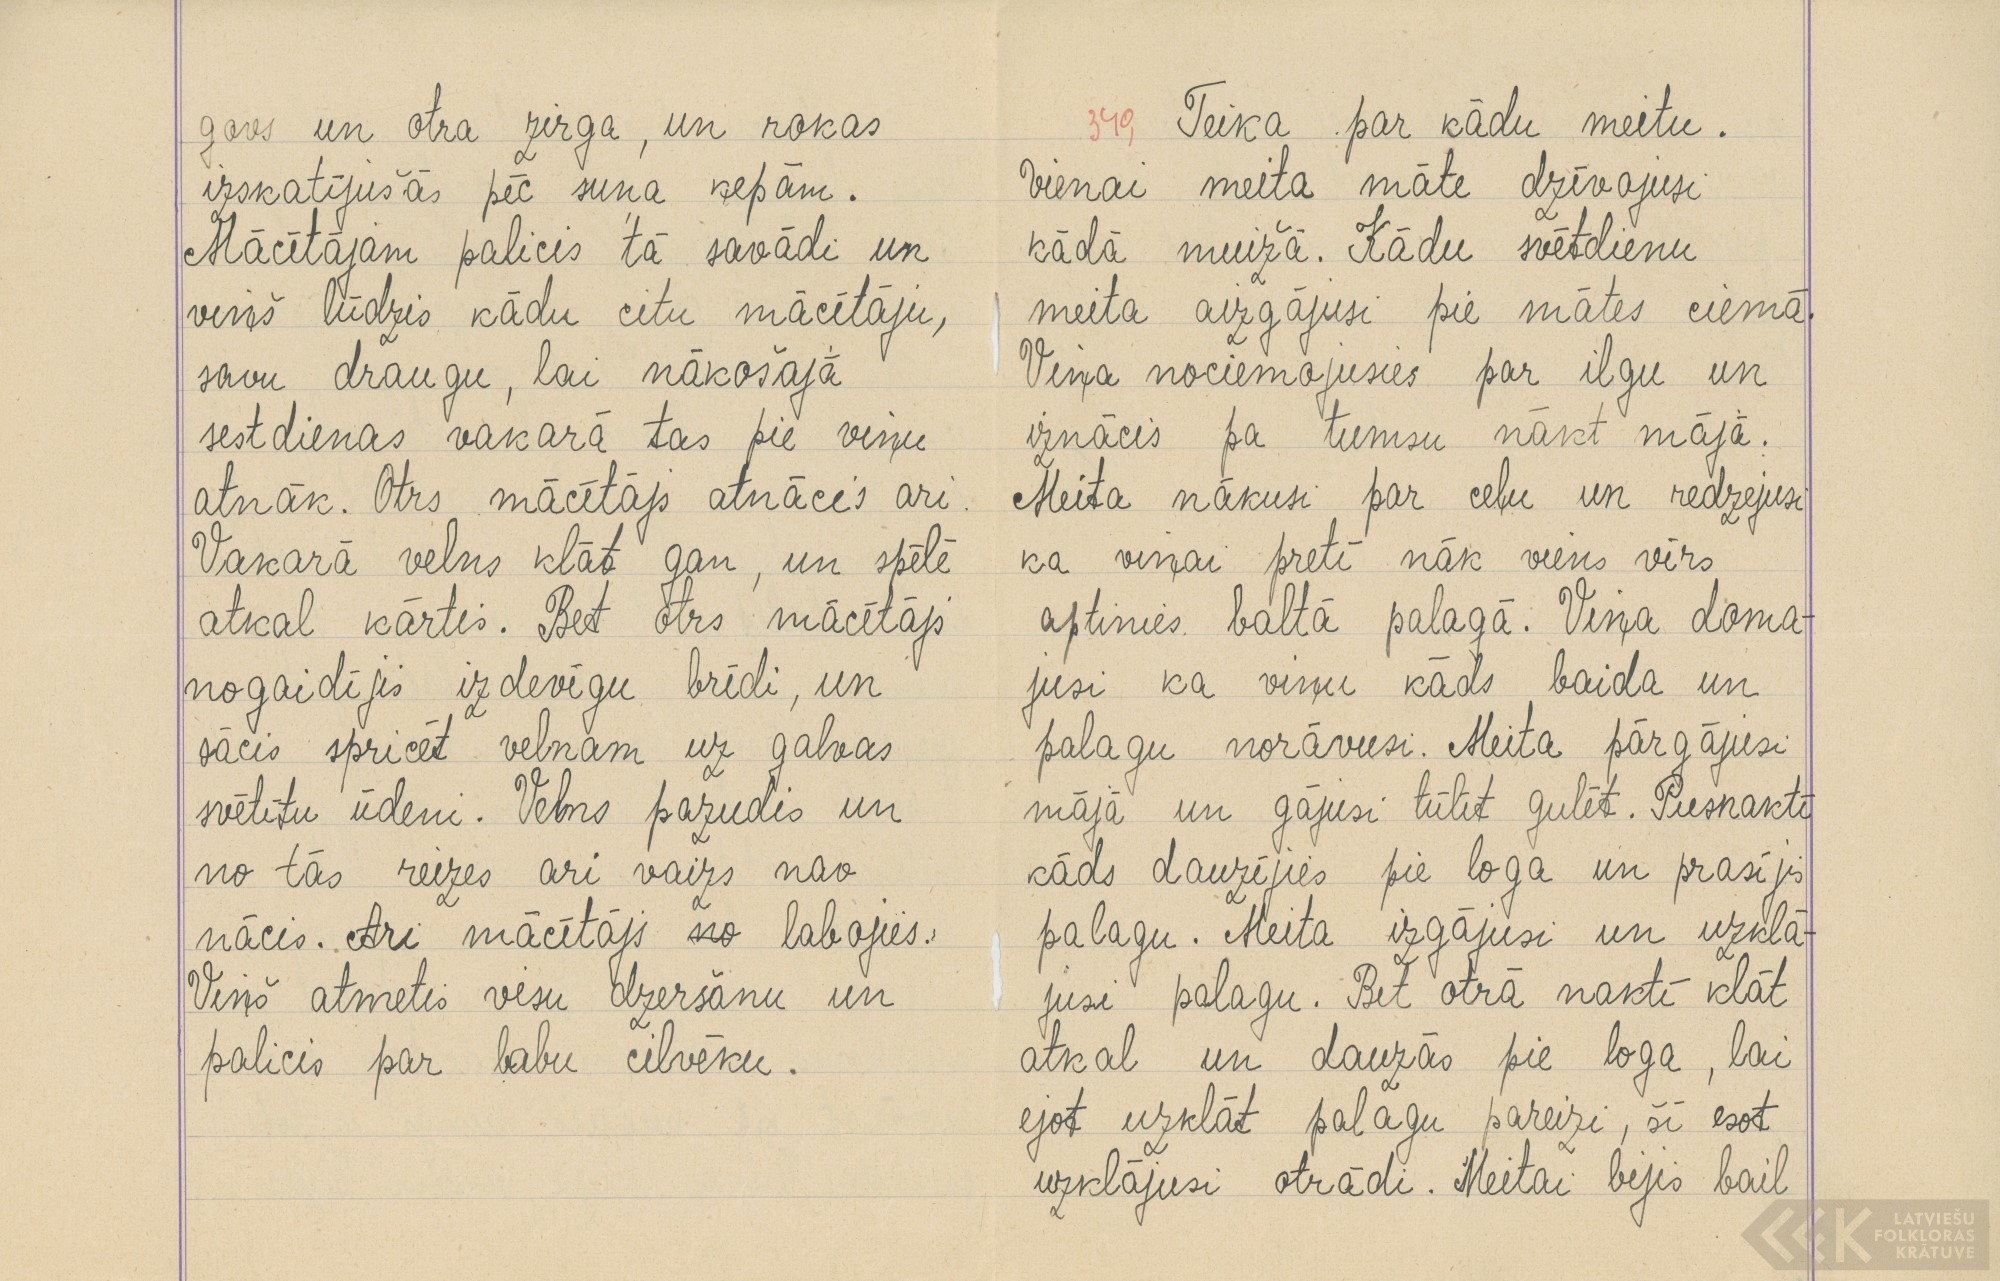 govs un otra zirga, un rokas
izskatījušās pēc suņa ķepām.
Mācītājam palicis tā savādi un
viņš lūdzis kādu citu mācītāju,
savu draugu, lai nākošajā
sestdienas vakarā tas pie viņu
atnāk. Otrs mācītājs atnācis ari.
Vakarā velns klāt gan, un spēlē
atkal kārtis. Bet otrs mācītājs
nogaidījis izdevīgu brīdi, un
sācis spricēt velnam uz galvas
svētītu ūdeni. Velns pazudis un
no tās reizes ari vairs nav
nācis. Ari mācītājs no labojies.
Viņš atmetis visu dzeršanu un
palicis par labu cilvēku.
349, Teika par kādu meitu.
Vienai meita māte dzīvojusi
kādā muižā. Kādu svētdienu
meita aizgājusi pie mātes ciemā.
Viņa nociemojusies par ilgu un
iznācis pa tumsu nākt mājā.
Meita nākusi par ceļu un redzejusi
ka viņai pretī nāk viens vīrs
aptinies baltā palagā. Viņa doma-
jusi ka viņu kāds baida un
palagu norāvusi. Meita pārgājusi
mājā un gājusi tūlīt gulēt. Pusnaktī
kāds dauzījies pie loga un prasījis
palagu. Meita izgājusi un uzklā-
jusi palagu. Bet otrā naktī klāt
atkal un dauzās pie loga, lai
ejot uzklāt palagu pareizi, šī esot
uzklājusi otrādi. Meitai bijis bail
LATVIEŠU
FOLKLORAS
KRĀTUVE